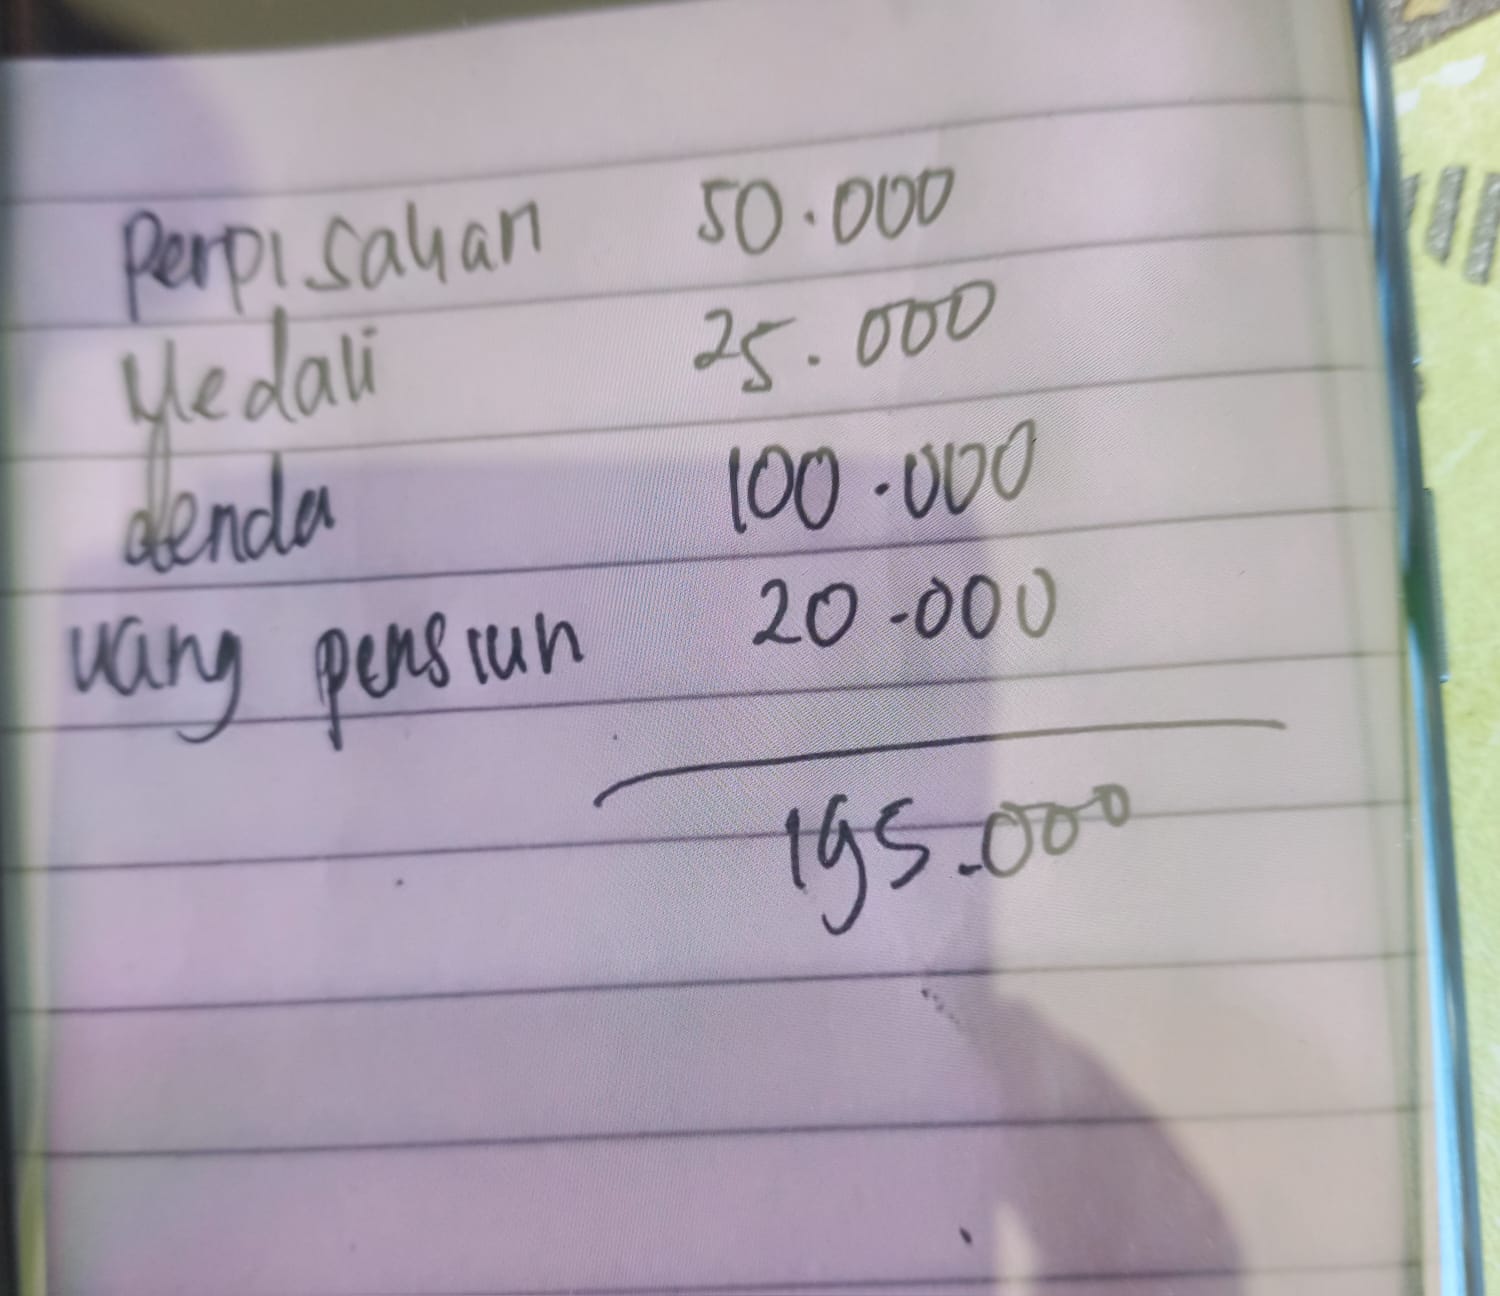 Perpisahan 50.000
Medali 25.000
denda 100.000
uang pensiun 20.000
195.000